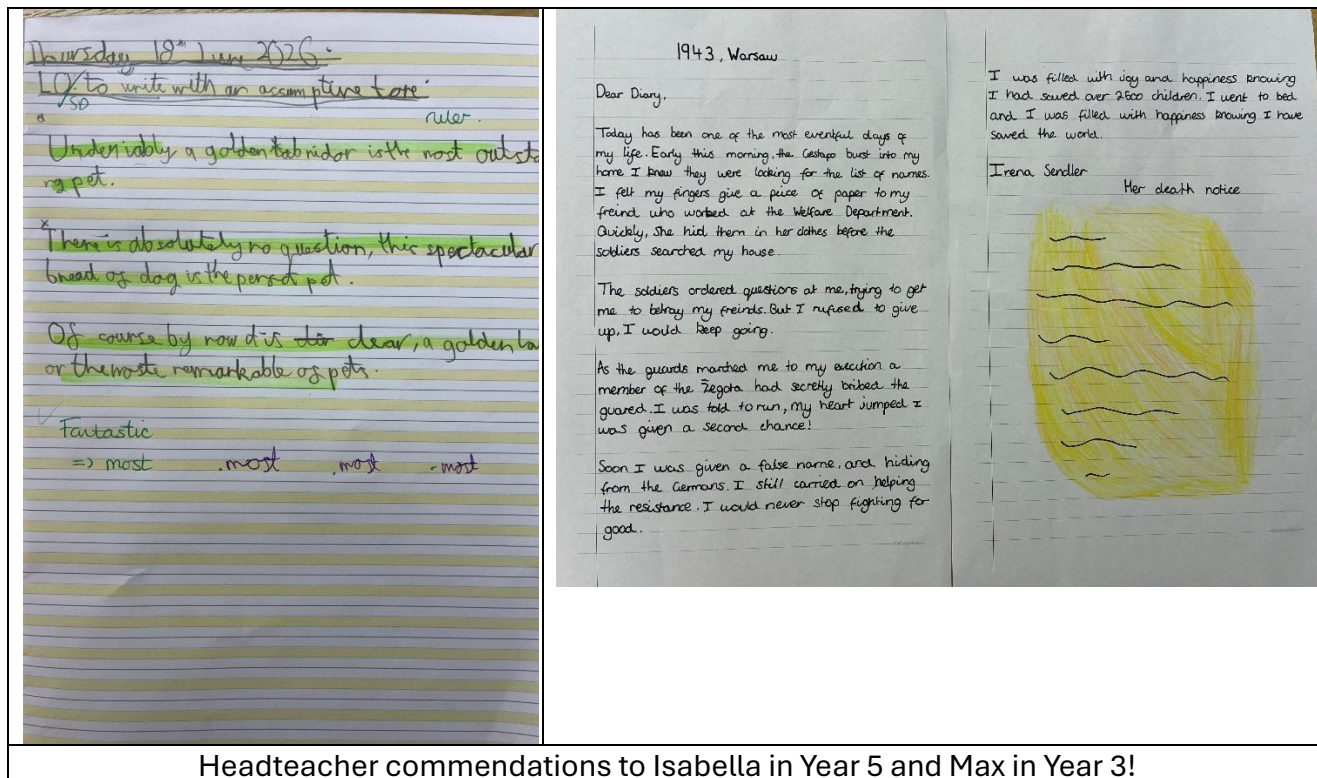 Thursday 18th June 2026.
LO/ to write with an assumptive tone
SO
ruler.
Undeniably a golden labridor is the most outsta
ng pet.
There is absolutely no question, this spectacular
bread of dog is the persot pet.
Of course by now it is clear, a golden la
or the moste remarkable of pets.
Fantastic
=> most .most .most -most
1943, Warsaw
Dear Diary,
Today has been one of the most eventful days of
my life. Early this morning, the Gestapo burst into my
home I knew they were looking for the list of names.
I felt my fingers give a peice of paper to my
freind who worked at the Welfare Department.
Quickly, she hid them in her clothes before the
soldiers searched my house.
The soldiers ordered questions at me, trying to get
me to betray my freinds. But I rufused to give
up, I would keep going.
As the guards marched me to my execution a
member of the Żegota had secretly bribed the
guared. I was told to run, my heart jumped I
was given a second chance!
Soon I was given a false name, and hiding
from the Germans. I still carried on helping
the resistance. I would never stop fighting for
good.
I was filled with joy and happiness knowing
I had saved over 2500 children. I went to bed
and I was filled with happiness knowing I have
saved the world.
Irena Sendler
Her death notice
Headteacher commendations to Isabella in Year 5 and Max in Year 3!